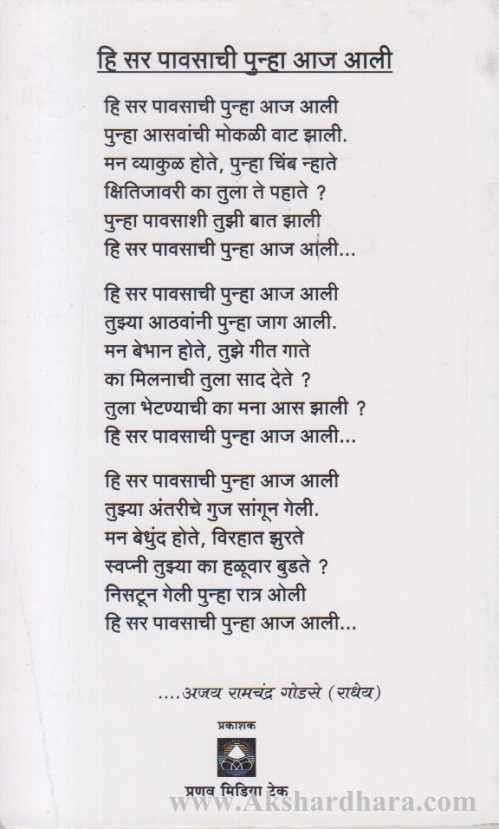 हि सर पावसाची पुन्हा आज आली
हि सर पावसाची पुन्हा आज आली
पुन्हा आसवांची मोकळी वाट झाली.
मन व्याकुळ होते, पुन्हा चिंब न्हाते
क्षितिजावरी का तुला ते पहाते ?
पुन्हा पावसाशी तुझी बात झाली
हि सर पावसाची पुन्हा आज आली...
हि सर पावसाची पुन्हा आज आली
तुझ्या आठवांनी पुन्हा जाग आली.
मन बेभान होते, तुझे गीत गाते
का मिलनाची तुला साद देते ?
तुला भेटण्याची का मना आस झाली ?
हि सर पावसाची पुन्हा आज आली...
हि सर पावसाची पुन्हा आज आली
तुझ्या अंतरीचे गुज सांगून गेली.
मन बेधुंद होते, विरहात झुरते
स्वप्नी तुझ्या का हळूवार बुडते ?
निसटून गेली पुन्हा रात्र ओली
हि सर पावसाची पुन्हा आज आली...
....अजय रामचंद्र गोडसे (राधेय)
प्रकाशक
प्रणव मिडिया टेक
www.Akshardhara.com